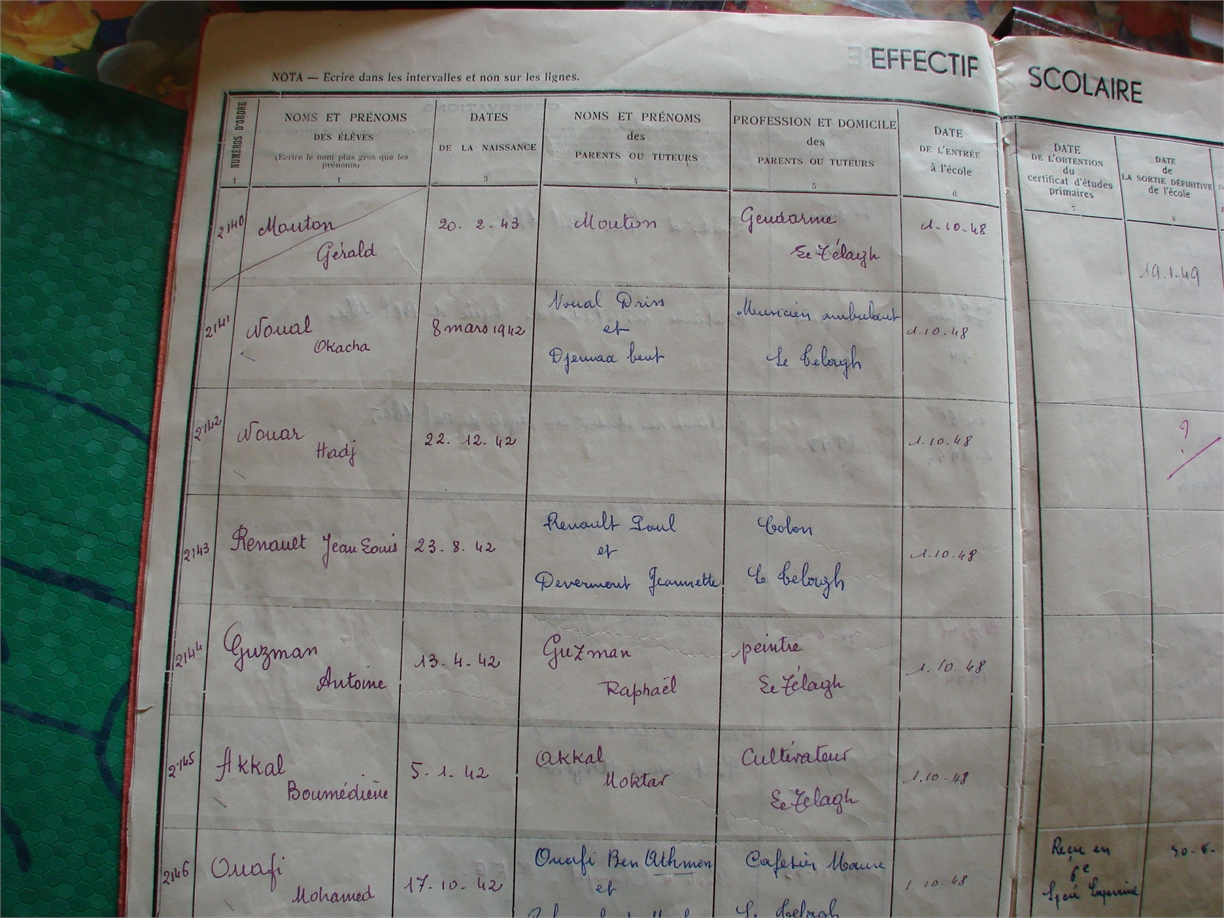 EFFECTIF SCOLAIRE
NOTA — Ecrire dans les intervalles et non sur les lignes.
NUMÉROS D'ORDRE
1
NOMS ET PRÉNOMS
DES ÉLÈVES
(Ecrire le nom plus gros que les
prénoms)
DATES
DE LA NAISSANCE
3
NOMS ET PRÉNOMS
des
PARENTS OU TUTEURS
4
PROFESSION ET DOMICILE
des
PARENTS OU TUTEURS
5
DATE
DE L'ENTRÉE
à l'école
6
DATE
DE L'OBTENTION
du
certificat d'études
primaires
7
DATE
de
LA SORTIE DÉFINITIVE
de l'école
8
2140 Mouton 20. 2. 43 Mouton Gendarme 1.10.48
Gérald Le Télagh
19.1.49
2141 Noual 8 mars 1942 Noual Driss Musicien ambulant 1.10.48
Okacha et
Djemaa bent Le Telagh
2142 Nouar 22. 12. 42 1.10.48 ?
Hadj
2143 Renault Jean Louis 23. 8. 42 Renault Paul Colon 1.10.48
et
Devermont Jeannette Le Telagh
2144 Guzman 13. 4. 42 Guzman peintre 1.10.48
Antoine Raphaël Le Télagh
2145 Akkal 5. 1. 42 Akkal Cultivateur 1.10.48
Boumédiène Moktar Le Telagh
2146 Ouafi 17. 10. 42 Ouafi Ben Athmen Cafetier Maure 1.10.48
Mohamed et
Le Telagh
Reçu en
6e
Lycée